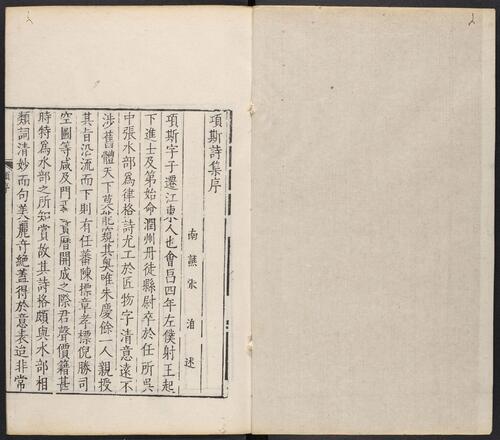 項斯詩集序
南譙張洎述
項斯字子遷江東人也會昌四年左僕射王起
下進士及第始命潤州丹徒縣尉卒於任所吳
中張水部爲律格詩尤工於匠物字清意遠不
涉舊體天下莫能窺其奧唯朱慶餘一人親授
其旨沿流而下則有任蕃陳標章孝標倪勝司
空圖等咸及門焉寶曆開成之際君聲價籍甚
時特爲水部之所知賞故其詩格頗與水部相
類詞清妙而句美麗奇絕蓋得於意表迨非常